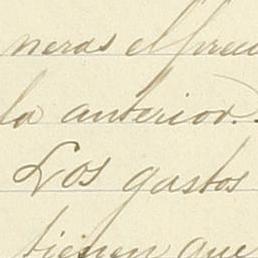 neras el preci
la anterior.
Los gastos
tienen que